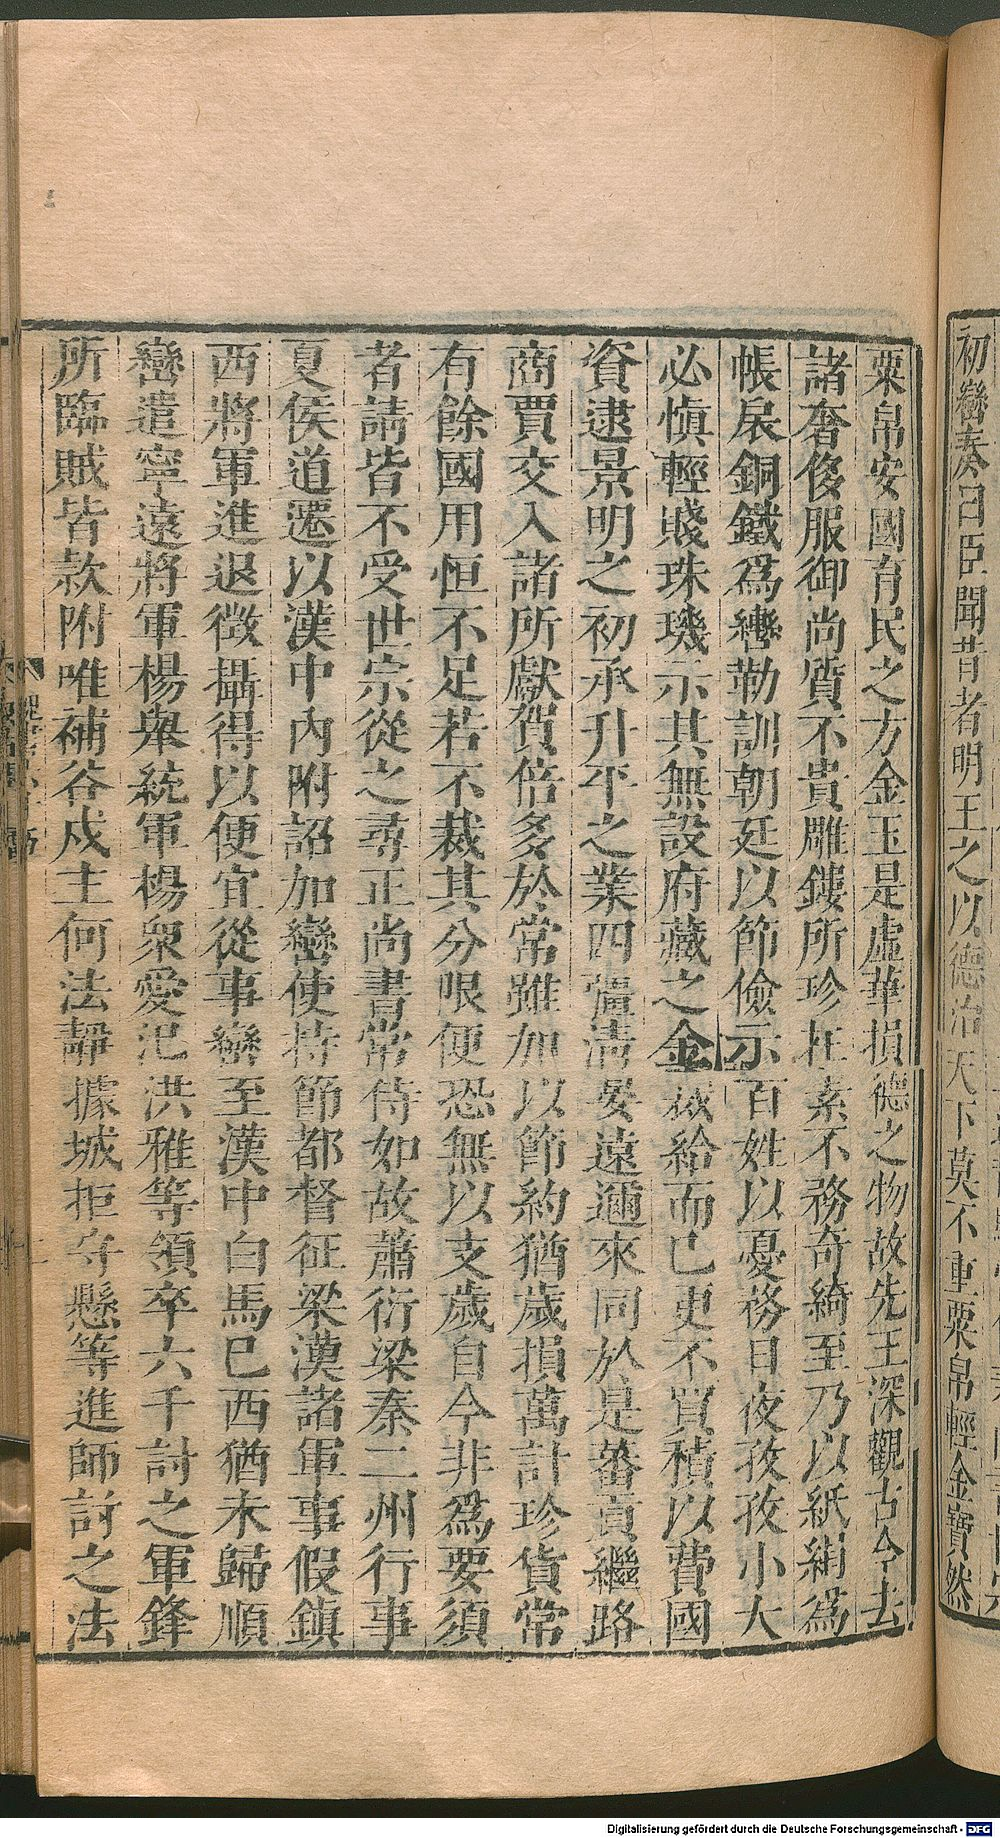 初巒奏曰臣聞昔者明王之以德治天下莫不重粟帛輕金寶然
粟帛安國育民之方金玉是虛華損德之物故先王深觀古今去
諸奢侈服御尚質不貴雕鏤所珍在素不務奇綺至乃以紙絹爲
帳扆銅鐵爲轡勒訓朝廷以節儉示百姓以憂務日夜孜孜小大
必愼輕賤珠璣示其無設府藏之金裁給而已更不買積以費國
資逮景明之初承升平之業四疆清晏遠邇來同於是蕃貢繼路
商賈交入諸所獻貿倍多於常雖加以節約猶歲損萬計珍貨常
有餘國用恒不足若不裁其分限便恐無以支歲自今非爲要須
者請皆不受世宗從之尋正尚書常侍如故蕭衍梁秦二州行事
夏侯道遷以漢中內附詔加巒使持節都督征梁漢諸軍事假鎮
西將軍進退徵攝得以便宜從事巒至漢中白馬巳西猶未歸順
巒遣寧遠將軍楊舉統軍楊衆愛汜洪雅等領卒六千討之軍鋒
所臨賊皆款附唯補谷戍主何法靜據城拒守懸等進師討之法
Digitalisierung gefördert durch die Deutsche Forschungsgemeinschaft - DFG